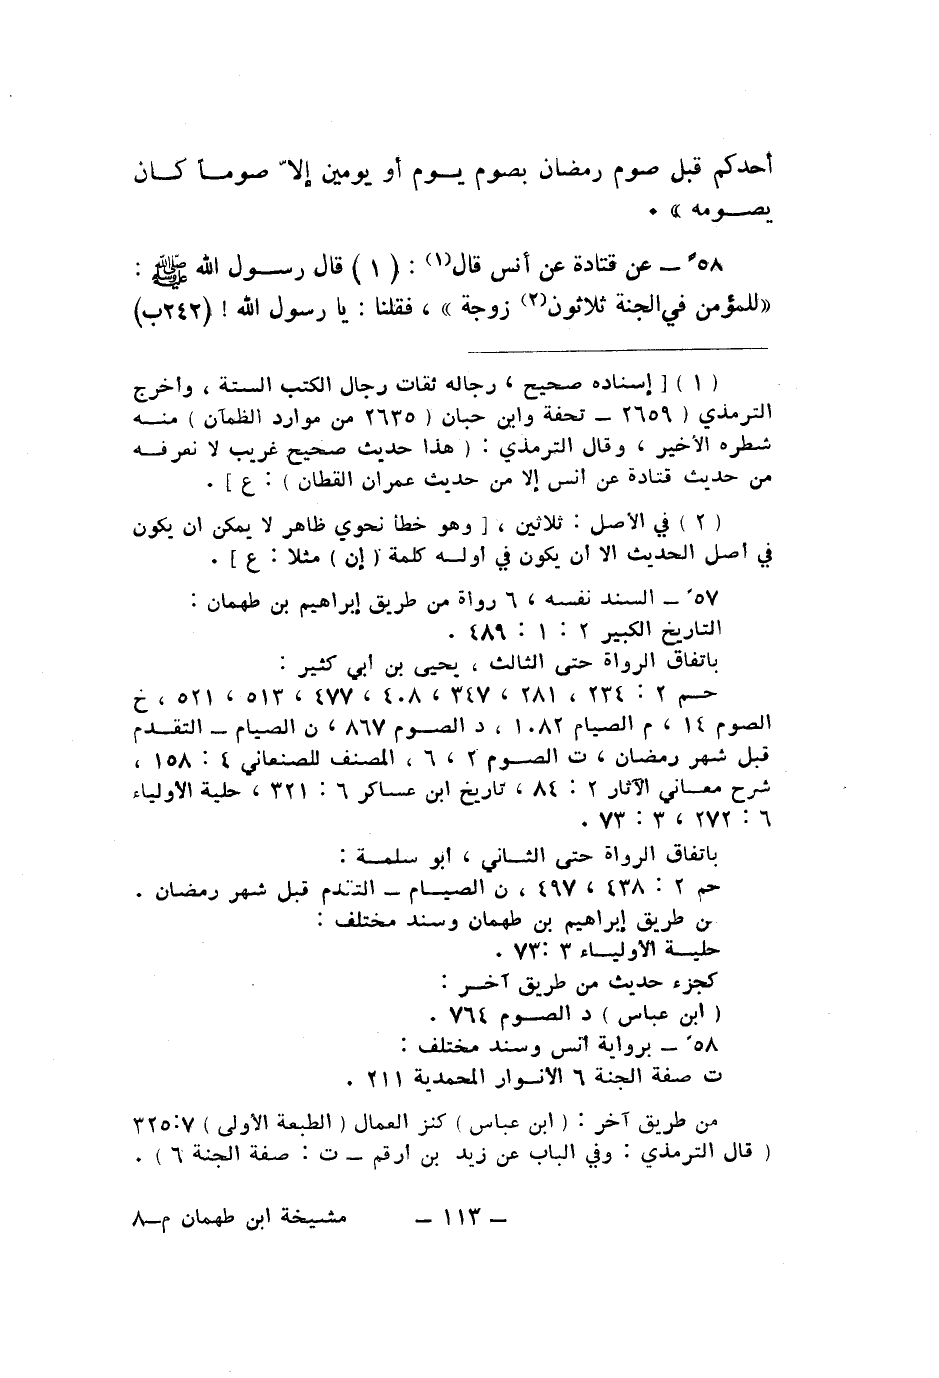 أحدكم قبل صوم رمضان بصوم يـوم أو يومين إلاّ صومـاً كـان
يصـومه » .
٥٨ـ عن قتادة عن أنس قال(١) : ( ١ ) قال رسـول الله ﷺ :
«للمؤمن في الجنة ثلاثون(٢) زوجة » ، فقلنا : يا رسول الله ! (٢٤٢ب)
( ١ ) [ إسناده صحيح ، رجاله ثقات رجال الكتب الستة ، وأخرج
الترمذي ( ٢٦٥٩ ـ تحفة وابن حبان ( ٢٦٣٥ من موارد الظمآن ) منـه
شطره الأخير ، وقال الترمذي : ( هذا حديث صحيح غريب لا نعرفـه
من حديث قتادة عن أنس إلا من حديث عمران القطان ) : ع ] .
( ٢ ) في الأصل : ثلاثين ، [ وهو خطأ نحوي ظاهر لا يمكن أن يكون
في أصل الحديث الا أن يكون في أولـه كلمة ( إن ) مثلا : ع ] .
٥٧ ـ السند نفسه ، ٦ رواة من طريق إبراهيم بن طهمان :
التاريخ الكبير ٢ : ١ : ٤٨٩ .
باتفاق الرواة حتى الثالث ، يحيى بن أبي كثير :
حـم ٢ : ٢٣٤ ، ٢٨١ ، ٣٤٧ ، ٤٠٨ ، ٤٧٧ ، ٥١٣ ، ٥٢١ ، خ
الصوم ١٤ ، م الصيام ١٠٨٢ ، د الصـوم ٨٦٧ ، ن الصيام ـ التقـدم
قبل شهر رمضان ، ت الصـوم ٢ ، ٦ ، المصنف للصنعاني ٤ : ١٥٨ ،
شرح معـاني الآثار ٢ : ٨٤ ، تاريخ ابن عساكر ٦ : ٣٢١ ، حلية الأولياء
٦ : ٢٧٢ ، ٣ : ٧٣ .
باتفاق الرواة حتى الثـاني ، أبو سلمـة :
حم ٢ : ٤٣٨ ، ٤٩٧ ، ن الصيـام ـ التقدم قبل شهر رمضان .
من طريق إبراهيم بن طهمان وسند مختلف :
حليـة الأوليـاء ٣ :٧٣ .
كجزء حديث من طريق آخـر :
( ابن عباس ) د الصـوم ٧٦٤ .
٥٨ ـ برواية أنس وسند مختلف :
ت صفة الجنة ٦ الأنـوار المحمدية ٢١١ .
من طريق آخر : ( ابن عباس ) كنز العمال ( الطبعة الأولى ) ٣٢٥:٧
( قال الترمذي : وفي الباب عن زيد بن أرقم ـ ت : صفة الجنة ٦ ) .
ـ ١١٣ ـ مشيخة ابن طهمان م-٨